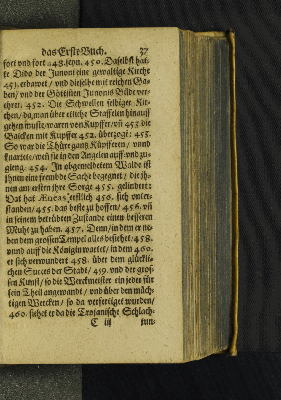 das Erste Buch. 37
fort vnd fort 448. seyn. 450. Daselbst hat-
te Dido der Junoni eine gewaltige Kirche
451. erbawet / vnd dieselbe mit reichen Ga-
ben / vnd der Göttisten Junonis Bilde ver-
ehret. 452. Die Schwellen selbiger Kir-
chen / da man über etliche Staffelen hinauff
gehen muste / waren von Kupffer / vñ 453. die
Balcken mit Kupffer 452. überzogt: 455.
So war die Thüre gantz Küpfferen / vnnd
knarrete / weñ sie in den Angelen auff vnd zu-
gieng. 454. In obgemeldetem Walde ist
jhnen eine fremde Sache begegnet / die jh-
nen am ersten jhre Sorge 455. gelindert:
Dat hat Æneas erstlich 456. sich vnter-
standen / 455. das beste zu hoffen / 456. vñ
in seinem betrübten Zustande einen besseren
Muht zu haben. 457. Denn / in dem er ne-
ben dem grossen Tempel alles besiehet / 458.
vnnd auff die Königin wartet / in dem 460.
er sich verwundert 458. über dem glückli-
chen Succes der Stadt / 459. vnd der gros-
sen Kunst / so die Werckmeister ein jeder für
sein Theil angewandt / vnd über den mäch-
tigen Wercken / so da verfertiget wurden /
460. siehet er da die Trojanische Schlach-
C iij ten-